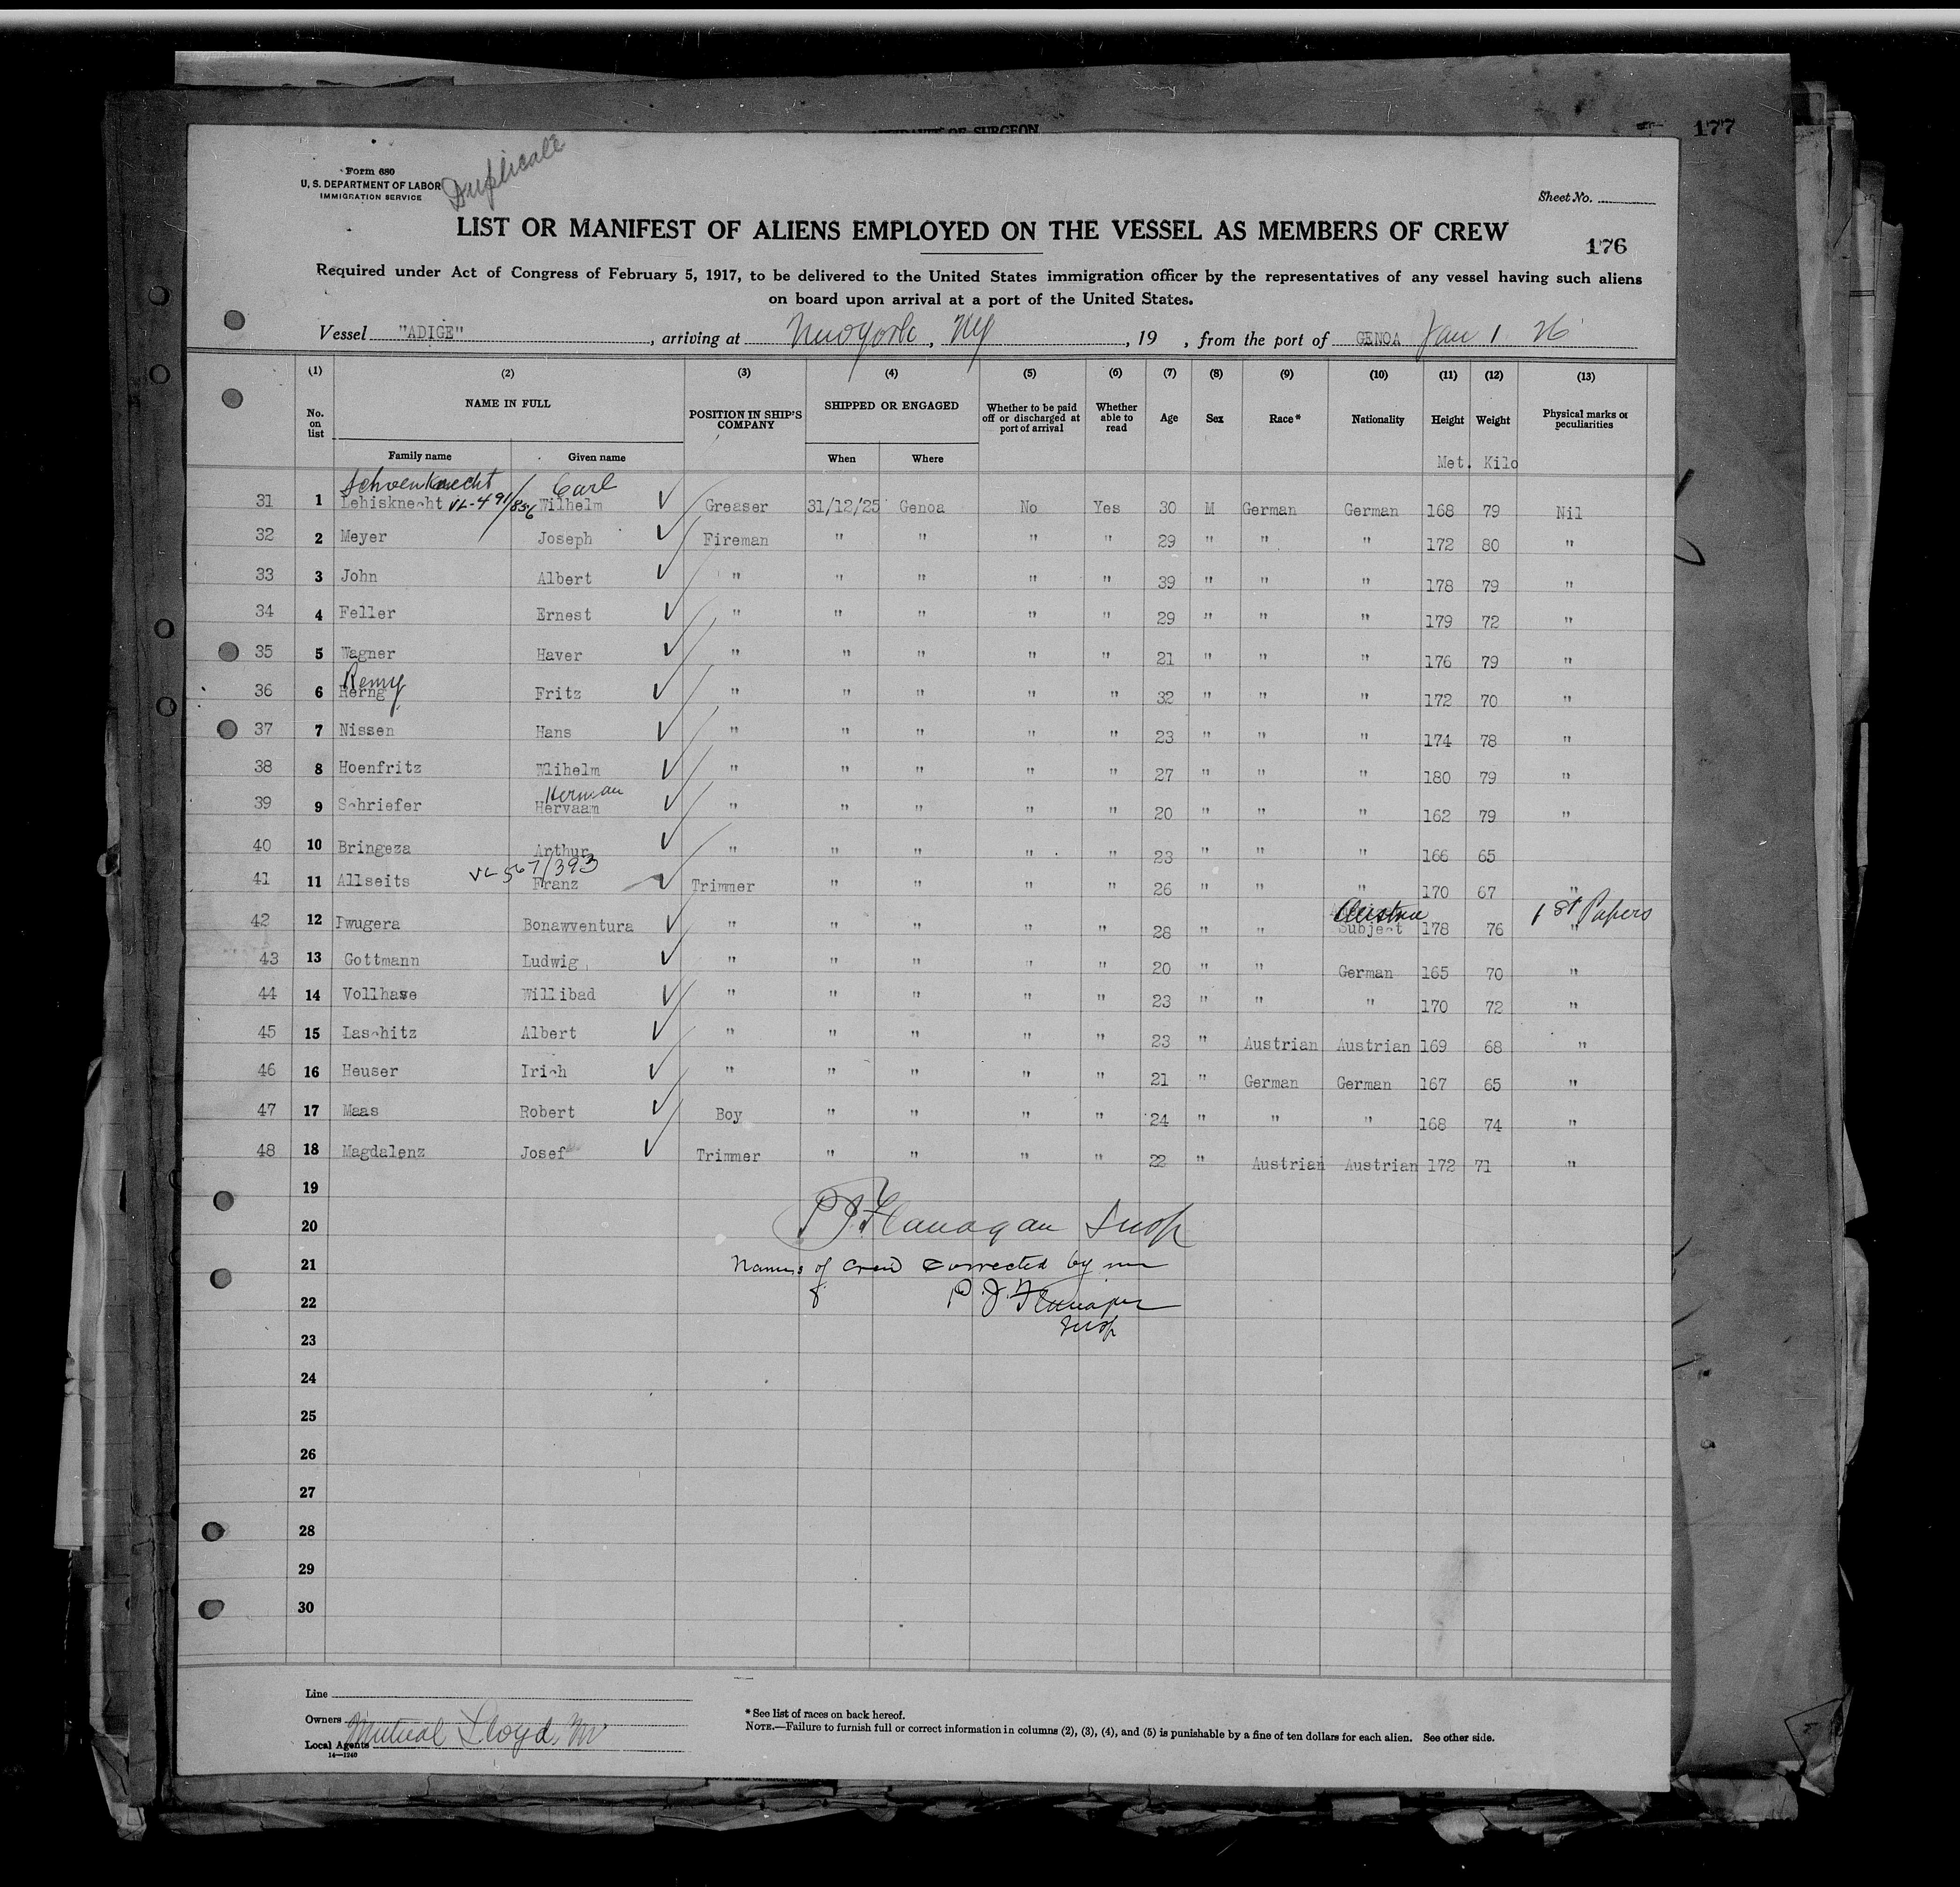 177
AFFIDAVIT OF SURGEON
Form 680
U. S. DEPARTMENT OF LABOR
IMMIGRATION SERVICE
Duplicate
Sheet No.
LIST OR MANIFEST OF ALIENS EMPLOYED ON THE VESSEL AS MEMBERS OF CREW
176
Required under Act of Congress of February 5, 1917, to be delivered to the United States immigration officer by the representatives of any vessel having such aliens
on board upon arrival at a port of the United States.
Vessel "ADIGE", arriving at New York, NY, 19 , from the port of GENOA Jan 1 26
(1) (2) (3) (4) (5) (6) (7) (8) (9) (10) (11) (12) (13)
No. on list NAME IN FULL POSITION IN SHIP'S COMPANY SHIPPED OR ENGAGED Whether to be paid off or discharged at port of arrival Whether able to read Age Sex Race* Nationality Height Weight Physical marks or peculiarities
Family name Given name When Where Met. Kilo
Schoenknecht Carl
31 1 Lehisknecht VL-491/856 Wilhelm ✓ Greaser 31/12/25 Genoa No Yes 30 M German German 168 79 Nil
32 2 Meyer Joseph ✓ Fireman " " " " 29 " " " 172 80 "
33 3 John Albert ✓ " " " " " 39 " " " 178 79 "
34 4 Feller Ernest ✓ " " " " " 29 " " " 179 72 "
35 5 Wagner Haver ✓ " " " " " 21 " " " 176 79 "
Remy
36 6 Rerng Fritz ✓ " " " " " 32 " " " 172 70 "
37 7 Nissen Hans ✓ " " " " " 23 " " " 174 78 "
38 8 Hoenfritz Wlihelm ✓ " " " " " 27 " " " 180 79 "
Herman
39 9 Schriefer Hervaam ✓ " " " " " 20 " " " 162 79 "
40 10 Bringeza Arthur ✓ " " " " " 23 " " " 166 65
VL 567/393
41 11 Allseits Franz ✓ Trimmer " " " " 26 " " " 170 67 "
Austria 1st Papers
42 12 Iwugera Bonawventura ✓ " " " " " 28 " " Subject 178 76 "
43 13 Gottmann Ludwig ✓ " " " " " 20 " " German 165 70 "
44 14 Vollhase Willibad ✓ " " " " " 23 " " " 170 72 "
45 15 Laschitz Albert ✓ " " " " " 23 " Austrian Austrian 169 68 "
46 16 Heuser Irich ✓ " " " " " 21 " German German 167 65 "
47 17 Maas Robert ✓ Boy " " " " 24 " " " 168 74 "
48 18 Magdalenz Josef ✓ Trimmer " " " " 22 " Austrian Austrian 172 71 "
19
20 P J Flanagan Insp
21 Names of crew corrected by me
22 P. J. Flanagan
Insp
23
24
25
26
27
28
29
30
Line
Owners
Mutual Lloyd
Local Agents
14—1240
* See list of races on back hereof.
NOTE.—Failure to furnish full or correct information in columns (2), (3), (4), and (5) is punishable by a fine of ten dollars for each alien. See other side.